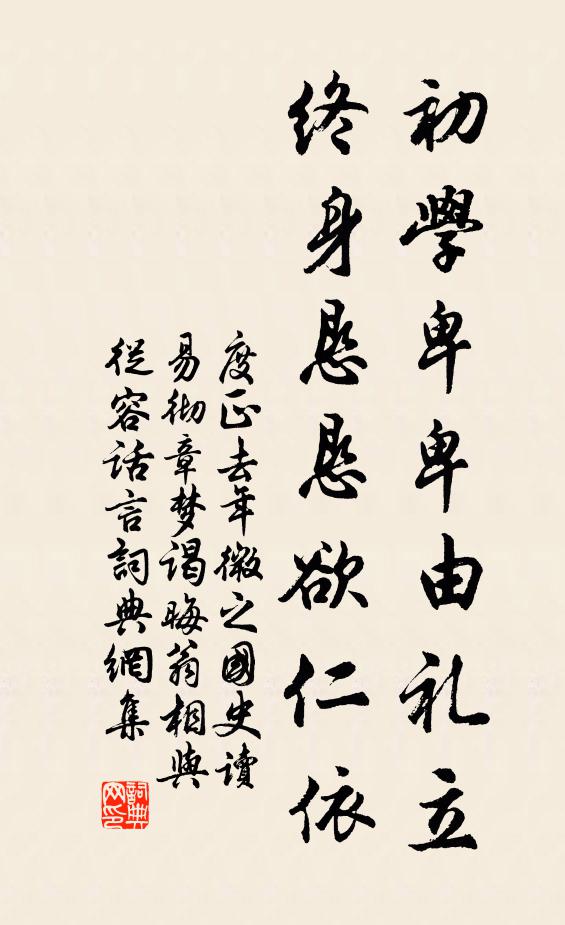 初學卑卑由礼立
終身恳恳欲仁依
度正去年微之國史讀
易彻章梦谒晦翁相與
從容话言詞典網集
詞典
网印